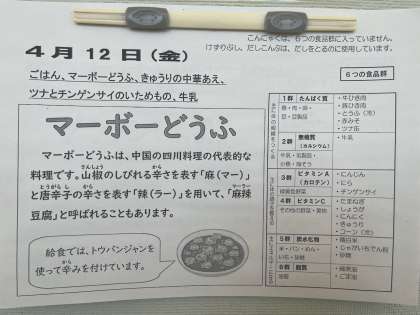 こんにゃくは、6つの食品群に入っていません。
けずりぶし、だしこんぶは、だしをとるのに使用しています。
4月12日(金)
ごはん、マーボーどうふ、きゅうりの中華あえ、
ツナとチンゲンサイのいためもの、牛乳
6つの食品群
マーボーどうふ
マーボーどうふは、中国の四川料理の代表的な
料理です。山椒のしびれる辛さを表す「麻(マー)」
さんしょう
から
と唐辛子の辛さを表す「辣(ラー)」を用いて、「麻辣
とうがらし
から
マーラー
豆腐」と呼ばれることもあります。
給食では、トウバンジャンを
使って辛みを付けています。
から
1群 たんぱく質
魚・肉・卵・
豆・豆製品
・牛ひき肉
・豚ひき肉
・とうふ(冷)
・赤みそ
・ツナ缶
2群 無機質
(カルシウム)
牛乳・乳製品・
小魚・海そう
・牛乳
3群 ビタミンA
(カロテン)
緑黄色野菜
・にんじん
・にら
・チンゲンサイ
4群 ビタミンC
その他の野菜・果物
・たまねぎ
・しょうが
・にんにく
・きゅうり
・コーン(冷)
5群 炭水化物
米・パン・めん・
いも・砂糖
・精白米
・じゃがいもでん粉
・砂糖
6群 脂質
油脂
・ごま油